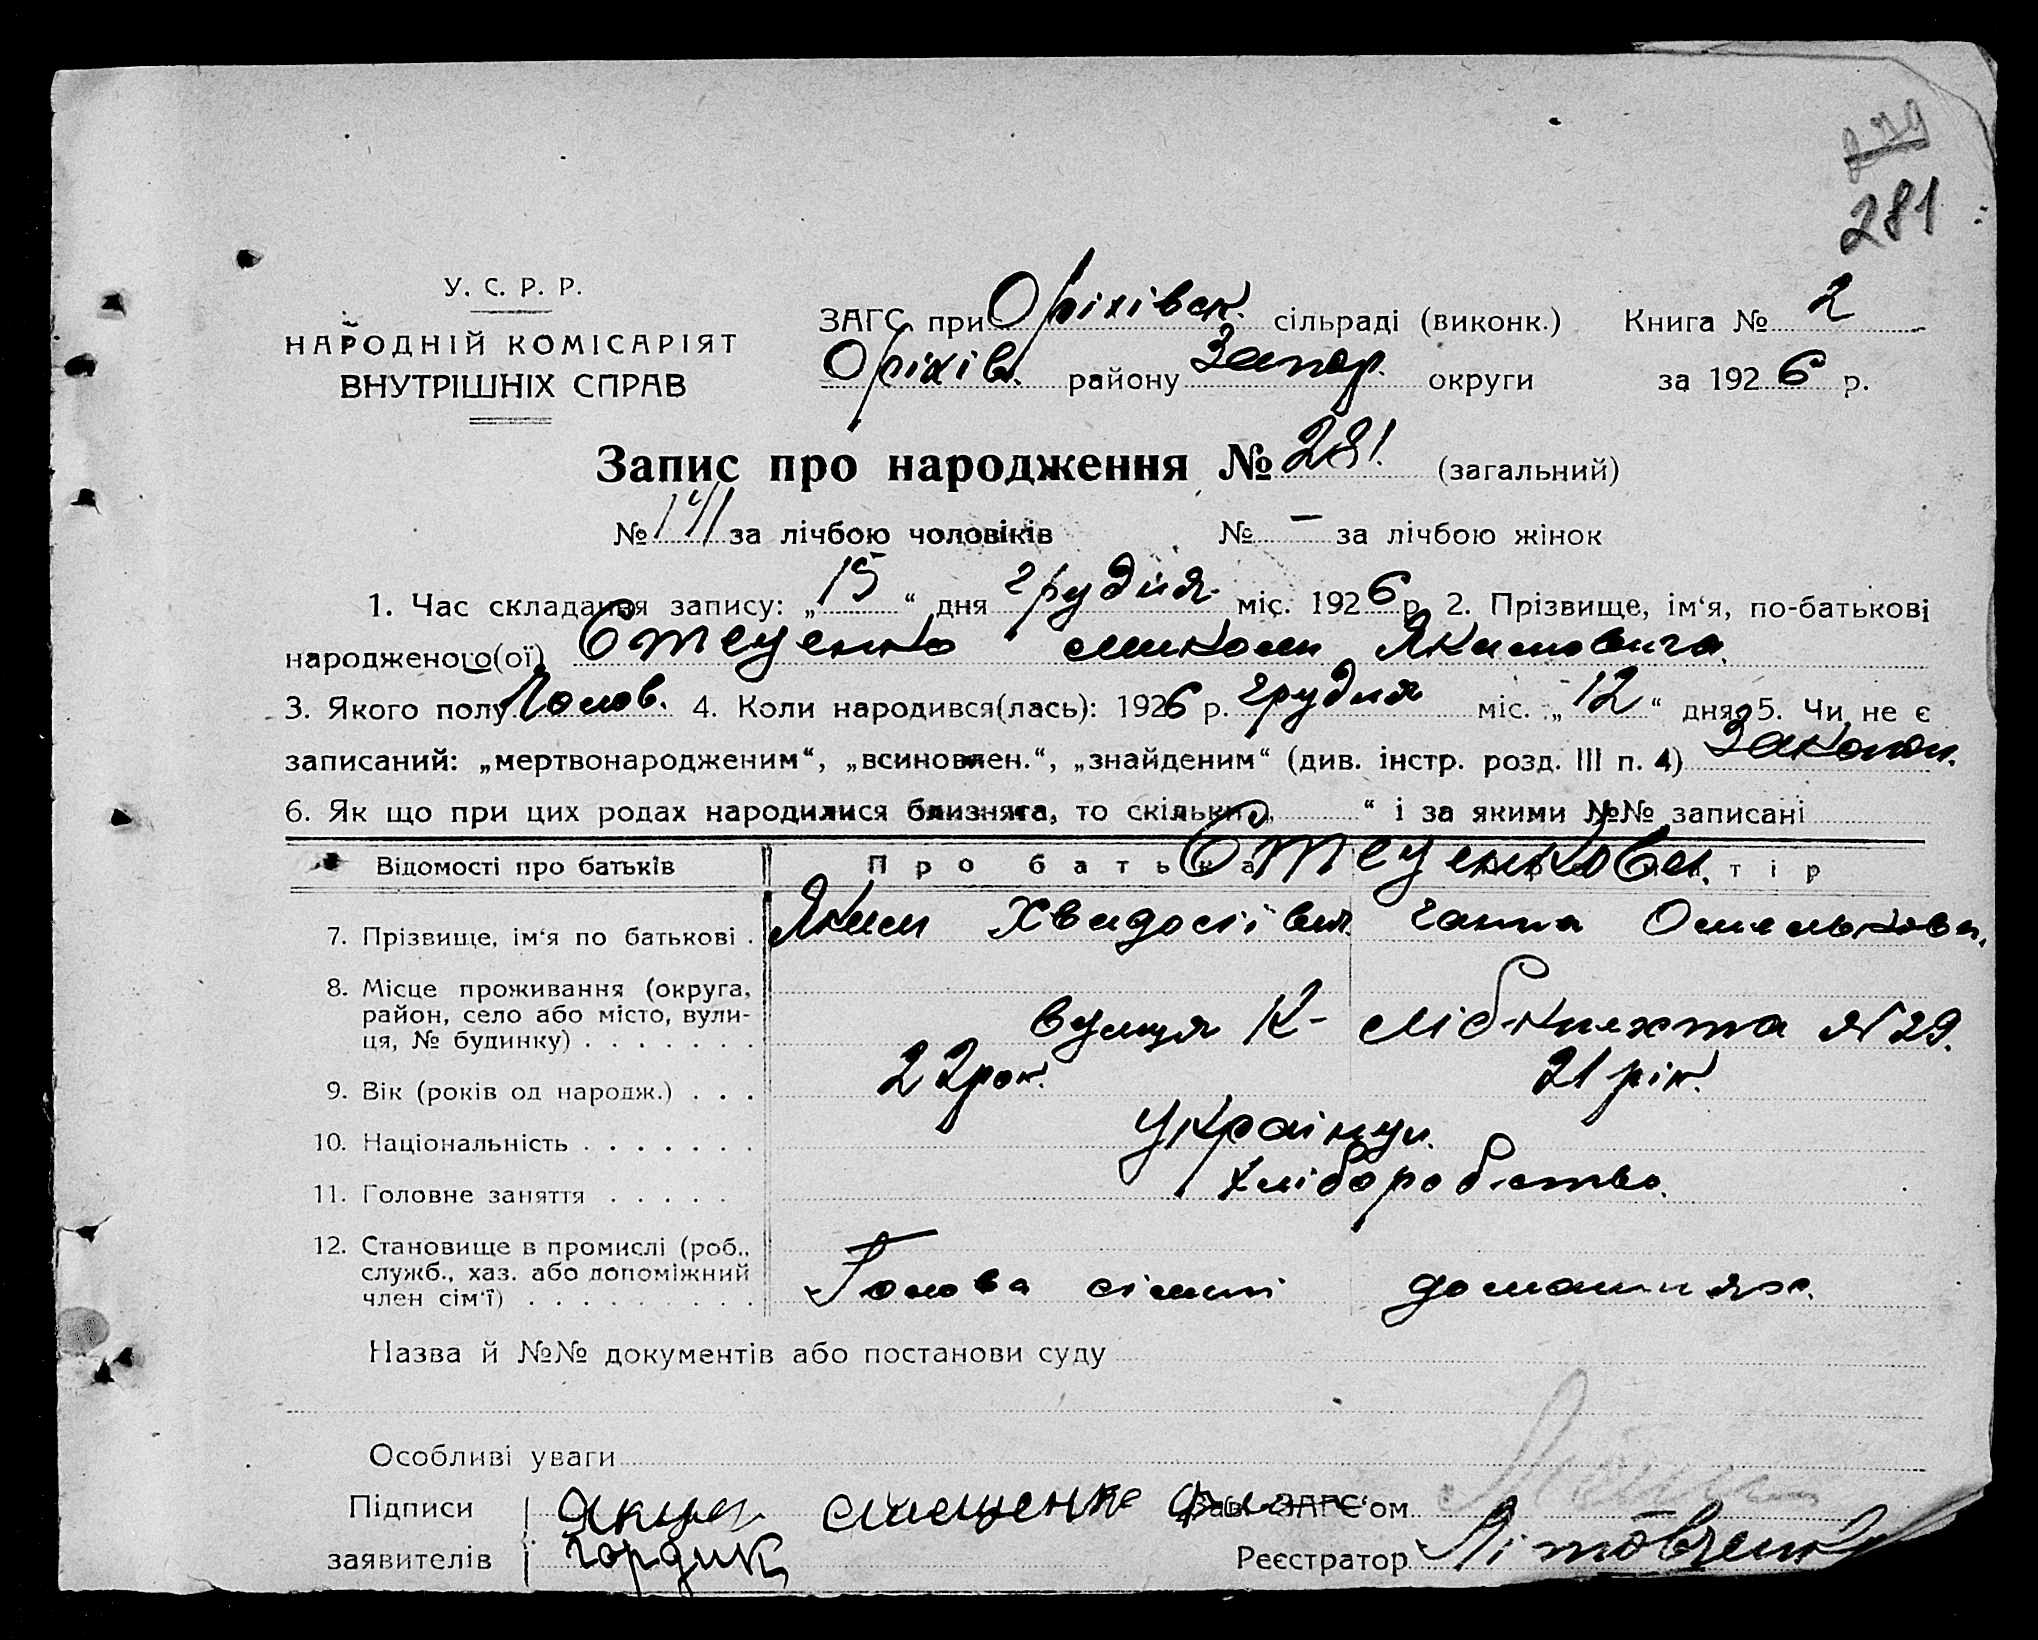 279
281
У. С. Р. Р.
НАРОДНІЙ КОМІСАРІЯТ
ВНУТРІШНІХ СПРАВ
ЗАГС при Оріхівск. сільраді (виконк.) Книга № 2
Оріхів. району Запор. округи за 1926 р.
Запис про народження № 281. (загальний)
№ 141 за лічбою чоловіків № – за лічбою жінок
1. Час складання запису: „15“ дня грудня міс. 1926 р. 2. Прізвище, ім‘я, по-батькові
народженого(ої) Стеценко Миколи Якимовича.
3. Якого полу Чолов. 4. Коли народився(лась): 1926 р. грудня міс. „12“ дня 5. Чи не є
записаний: „мертвонародженим“, „всиновлен.“, „знайденим“ (див. інстр. розд. III п. 4) Законн.
6. Як що при цих родах народилися близнята, то скільки „ “ і за якими №№ записані
Відомості про батьків Про батька Стеценкови.
7. Прізвище, ім‘я по батькові . Яким Хведосієвич Ганна Омельков.
8. Місце проживання (округа,
район, село або місто, вули-
ця, № будинку) . . . . . . . вулиця К- Лібкнехта № 29.
9. Вік (років од народж.) . . . 22 рок. 21 рік.
10. Національність . . . . . . . Українци.
11. Головне заняття . . . . . Хліборобство.
12. Становище в промислі (роб.,
служб., хаз. або допоміжний
член сім‘ї) . . . . . . . . . Голова сімьї домашнях.
Назва й №№ документів або постанови суду
Особливі уваги
Підписи Зав. ЗАГС‘ом
заявителів Гордик Реєстратор Літовченко